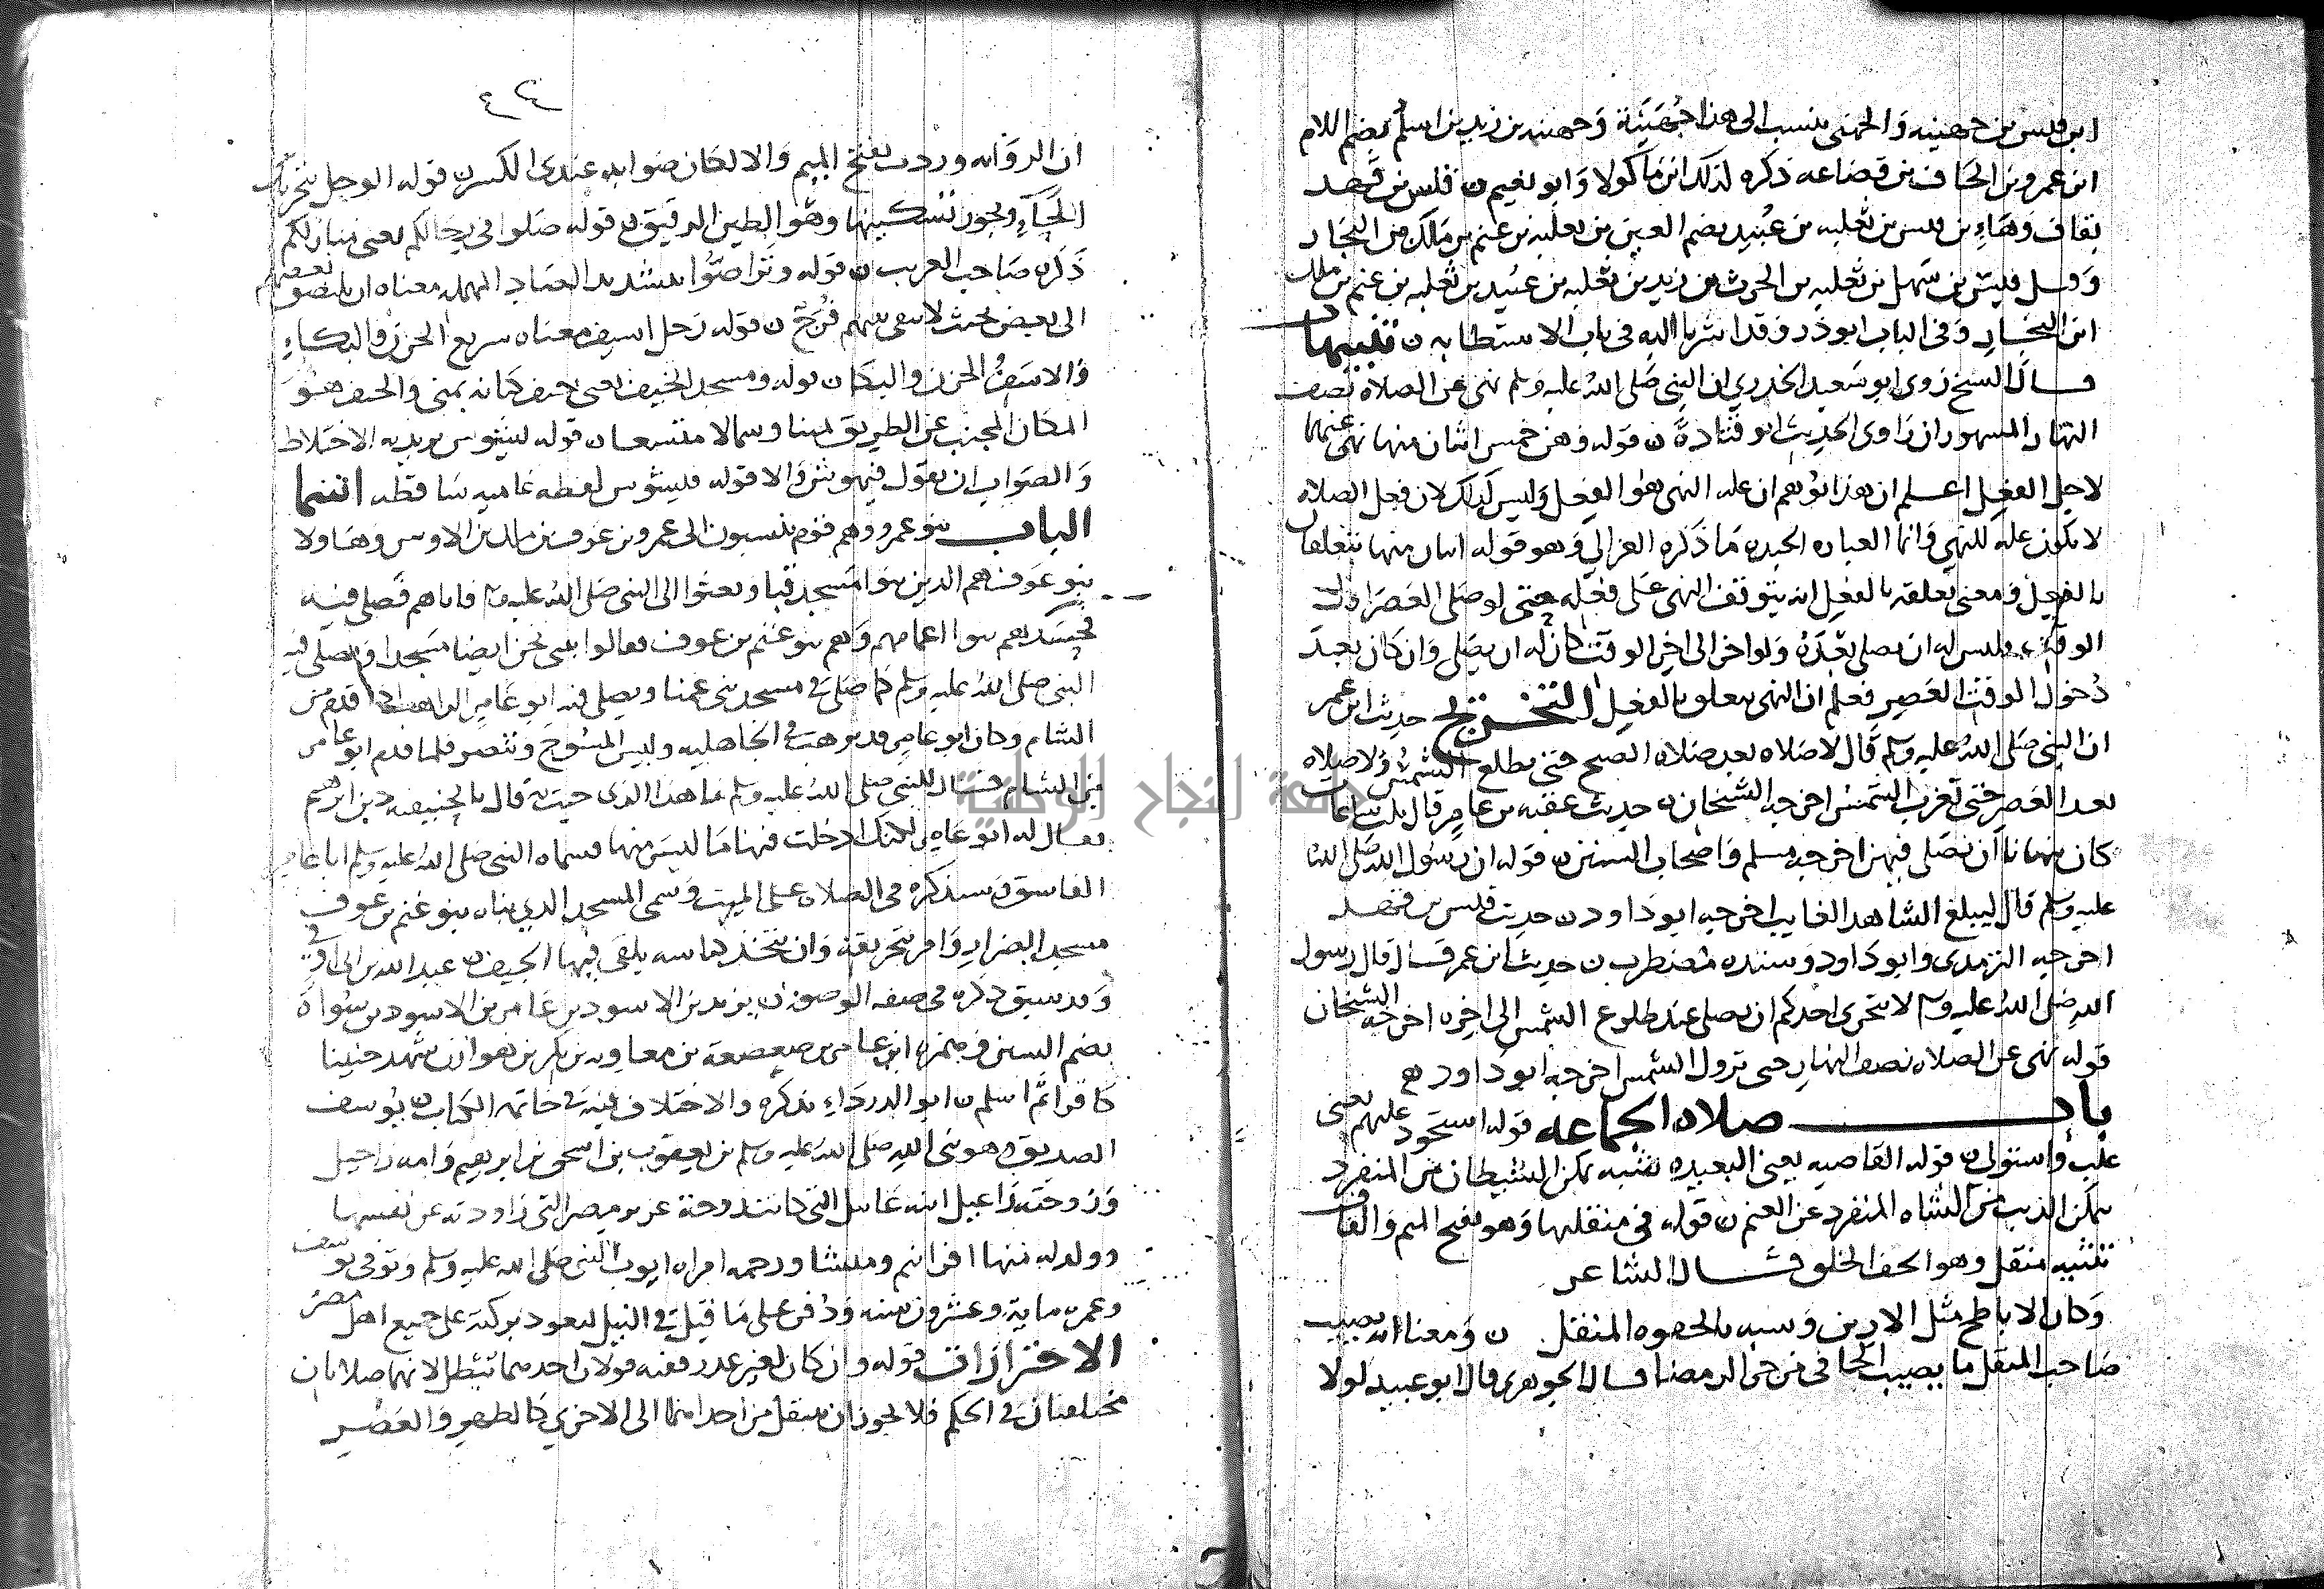 ابن قيس بن جهينه والجهني ينسب الى هذا جُهَيْنَة وجهينه بن زيد بن اسلُم بضم اللام
ابن عمرو بن الحاف بن قضاعه ذكره كذلك ابن ماكولا وابو نعيم ن قيس بن قهد
بقاف وهاء بن قيس بن ثعلبه بن عُبيد بضم العين بن ثعلبه بن غنم بن مالك بن النجار
وقيل قيس بن سهل بن ثعلبه بن الحرث بن زيد بن ثعلبه بن عبيد بن ثعلبه بن غنم بن ملك
ابن النجار وفي الباب ابو ذر وقد اشرنا اليه في باب الاستطابه ن تنبيهان
قال الشيخ روى ابو سعيد الخدري ان النبي صَلى اللهُ عليه وسلم نهى عن الصلاة نصف
النهار المشهور ان راوى الحديث ابو قتادةَ ن قوله وهن خمس اثنان منها نهى عنهما
لاجل الفعل اعلم ان هذا يوهم ان علة النهى هو الفعل وليس كذلك لان فعل الصلاة
لا يكون علة للنهي وانما العباره الجيده ما ذكره الغزالي وهو قوله اثنان منها تتعلقان
بالفعل ومعنى تعلقه بالفعل انه يتوقف النهى على فعله حتى لو صلى العصر اول
الوقت فليس له ان يصلى بعده ولو اخر الى اخر الوقت كان له ان يصلى وان كان بعد
دخول الوقت العصر فعلم ان النهى يتعلق بالفعل التخريج حديث ابن عمر
ان النبي صَلى اللهُ عليه وسلم قال لا صلاه بعد صلاه الصبح حتى تطلع الشمس ولا صلاه
بعد العصر حتى تغرب الشمس اخرجه الشيخان ن حديث عقبه بن عامر قال ثلث ساعات
كان نهانا ان نصلى فيهن اخرجه مسلم واصحاب السنن ن قوله ان رسول الله صَلى اللهُ
عليه وسلم قال ليبلغ الشاهد الغايب اخرجه ابو داود ن حديث قيس بن قهد
اخرجه الترمدى وابو داود وسنده مضطرب ن حديث ابن عمر قال قال رسول
الله صَلى اللهُ عليه وسلم لا يتحرى احدكم ان يصلى عند طلوع الشمس الى اخره اخرجه الشيخان
قوله نهى عن الصلاه نصف النهار حتى تزول الشمس اخرجه ابو داود
باب صلاه الجماعه قوله استحود عليهم يعنى
غلب واستولى ن قوله القاصيه يعنى البعيده شبه تمكن الشيطان من المنفرد
بتمكن الذيب من الشاه المنفرد عن الغنم ن قوله في منقلبها وهو بفتح الميم والقاف
تثنيه منقل وهو الخف الخلق قال الشاعر
وكان الاباطح مثل الارين وشبه بالحقوه المنقل ن ومعناه انه يصيب
صاحب المنقل ما يصيب الحافى من حر الرمضا قال الجوهرى قال ابو عبيد لولا
٤٢
ان الروايه وردت بفتح الميم والا لكان صوابه عندى الكسر ن قوله الوحل بتحريك
الحَاءِ ويجوز تسكينها وهو الطين الرقيق ن قوله صلوا في رحالكم يعنى منازلكم
ذكره صاحب الغريب ن قوله وتراصُّوا بتشديد الصاد المهمله معناه ان يلتصق بعضهم
الى بعض بحيث لا يبقى بينهم فُرَجٌ ن قوله رجل اسيف معناه سريع الحزن والبكاءِ
والاسَفُ الحزن والبكا ن قوله ومسجد الخيف يعنى خيف كنانه بمنى والخيف هو
المكان المجنب عن الطريق يمينا وشمالا متسعا ن قوله ليشوش يريد به الاختلاط
والصواب ان يقول فيهوش والا قوله فيشوش لفظه عاميه ساقطه اسما
الباب بنو عمرو وهم قوم ينسبون الى عمرو بن عوف بن مالك بن الاوس وهاولا
بنو عوف هم الدين بنوا مسجد قبا وبعثوا الى النبي صَلى اللهُ عليه وسلم فاتاهم فصلى فيه
فحسدهم بنوا اعمامهم وهم بنو غنم بن عوف فقالوا نبنى نحن ايضا مسجدا ويصلى فيه
النبي صلى اللهُ عليه وسلم كما صلى في مسجد بنى عمنا ويصلى فيه ابو عامر الراهب اذا قدم من
الشام وكان ابو عامر قد ترهب في الجاهليه ولبس المسوح وتنصر فلما قدم ابو عامر
من الشام قال للنبي صَلى اللهُ عليه وسلم ما هذا الدى جيت به قال بالحنيفيه دين ابرهيم
فقال له ابو عامر لكنك ادخلت فيها ما ليس منها فسماه النبي صَلى اللهُ عليه وسلم ابا عامر
الفاسق وسنذكره في الصلاه على الميت وسمى المسجد الدي بناه بنو غنم بن عوف
مسجد الضرار وامر بتحريقه وان يتخذ كناسه يلقى فيها الجيف ن عبد الله بن ابى اوفى
وقد سبق ذكره في صفه الوضو ن يزيد بن الاسود بن عامر بن الاسود بن سُواة
بضم السين وضمرا ابن عامر بن صعصعة بن معاويه بن بكر بن هوازن شهد حنينا
كافرا ثم اسلم ن ابو الدرداءِ نذكره والاختلاف فيه في خاتمه الكتاب ن يوسف
الصديق وهو نبى الله صَلى اللهُ عليه وسلم بن يعقوب بن اسحق بن ابرهيم وامه راحيل
وزوجته راعيل ابنه عاييل التي كانت زوجة عزيز مصر التى راودته عن نفسها
وولد له منها افراثيم وميشا ورحمه امراه ايوب النبي صَلى الله عليه وسلم وتوفى يوسف
وعمره مايه وعشرون سنه ودفن على ما قيل في النيل لتعود بركته على جميع اهل مصر
الاحترازات قوله وان كان لغير عدر ففيه قولان احدهما تبطل لانهما صلاتان
مختلفتان في الحكم فلا يجوز ان ينتقل من احداهما الى الاخرى كالظهر والعصر
جامعة النجاح الوطنية